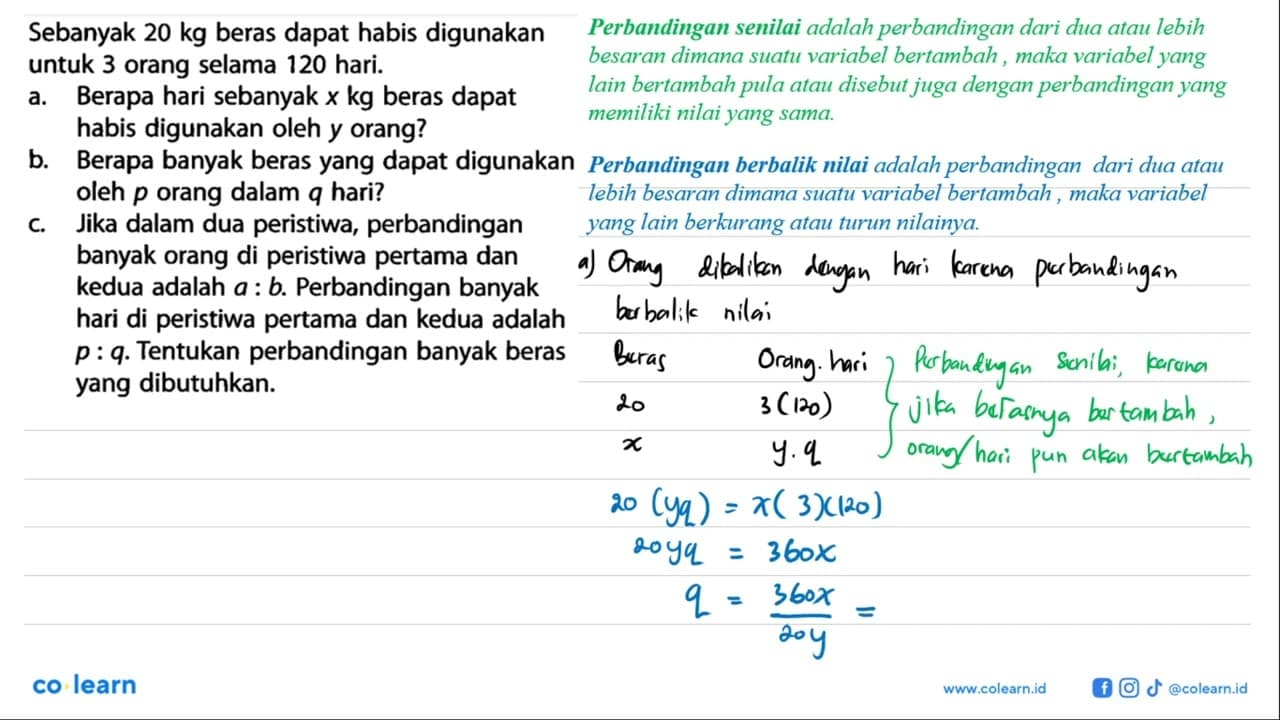 Sebanyak 20 kg beras dapat habis digunakan
untuk 3 orang selama 120 hari.
a. Berapa hari sebanyak x kg beras dapat
habis digunakan oleh y orang?
b. Berapa banyak beras yang dapat digunakan
oleh p orang dalam q hari?
c. Jika dalam dua peristiwa, perbandingan
banyak orang di peristiwa pertama dan
kedua adalah a : b. Perbandingan banyak
hari di peristiwa pertama dan kedua adalah
p : q. Tentukan perbandingan banyak beras
yang dibutuhkan.
Perbandingan senilai adalah perbandingan dari dua atau lebih
besaran dimana suatu variabel bertambah , maka variabel yang
lain bertambah pula atau disebut juga dengan perbandingan yang
memiliki nilai yang sama.
Perbandingan berbalik nilai adalah perbandingan dari dua atau
lebih besaran dimana suatu variabel bertambah , maka variabel
yang lain berkurang atau turun nilainya.
a) Orang dikalikan dengan hari karena perbandingan
berbalik nilai
Beras Orang. hari
20 3(120)
x y. q
Perbandingan senilai, karena
jika berasnya bertambah,
orang/hari pun akan bertambah
20 (yq) = x( 3)(120)
20yq = 360x
q = 360x =
20y
co learn
www.colearn.id
@colearn.id